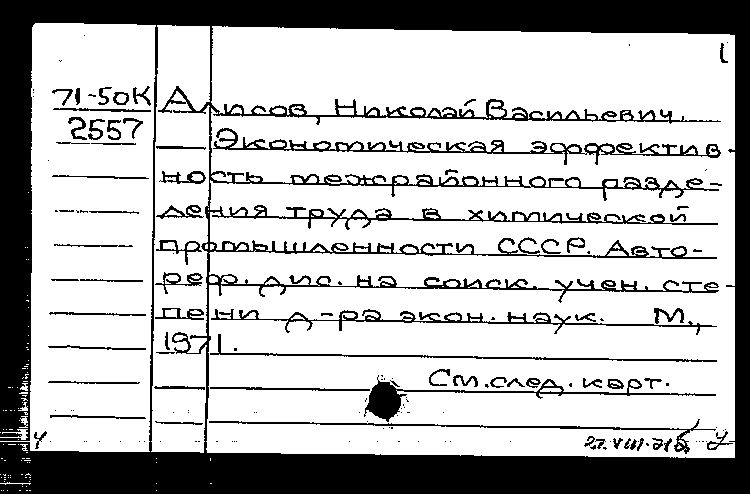 1
71-50К Алисов, Николай Васильевич.
2557
Экономическая эффектив-
ность межрайонного разде-
ления труда в химической
промышленности СССР. Авто-
реф. дис. на соиск. учен. сте-
пени д-ра экон. наук. М.,
1971.
См. след. карт.
ч